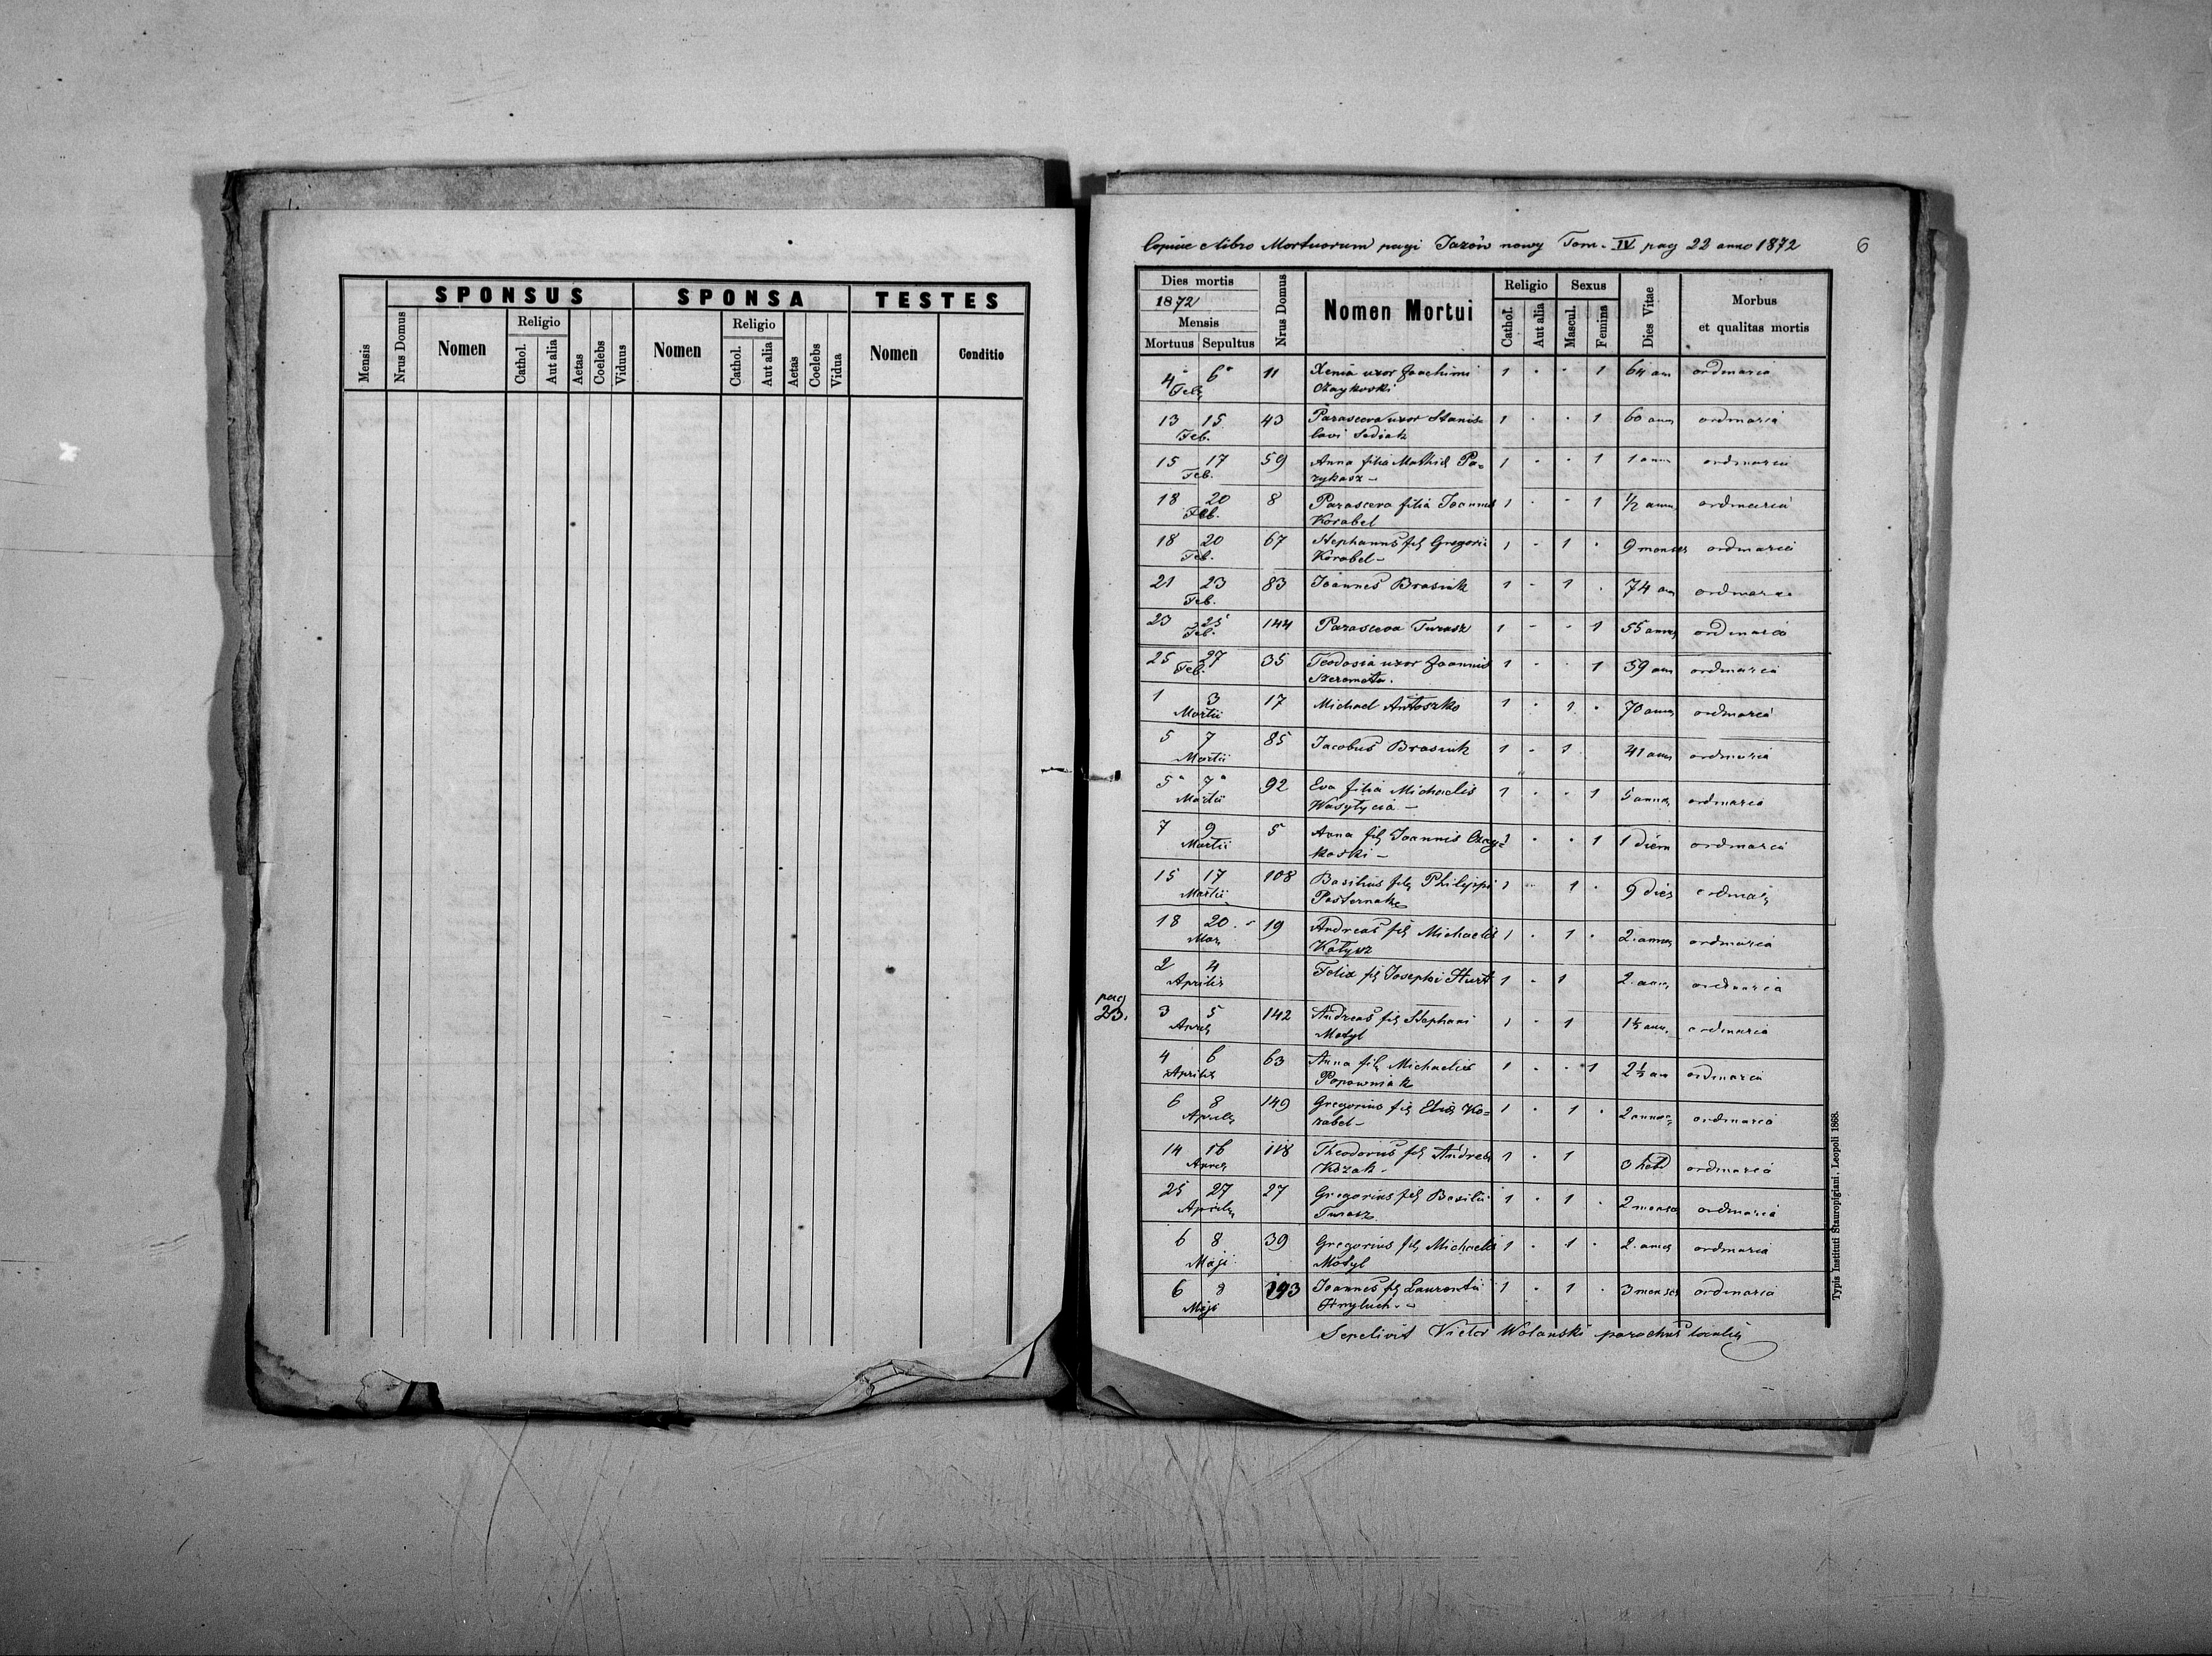 SPONSUS SPONSA TESTES
Mensis Nrus Domus Nomen Religio Cathol. Aut alia Aetas Coelebs Viduus Nomen Religio Cathol. Aut alia Aetas Coelebs Vidua Nomen Conditio
Copiae e libro Mortuorum pagi Jazów nowy Tom. IV pag 22 anno 1872
6
Dies mortis
1872
Mensis
Mortuus Sepultus
Nrus Domus
Nomen Mortui
Religio
Cathol. Aut alia
Sexus
Mascul. Femina
Dies Vitae
Morbus
et qualitas mortis
4 6 11 Xenia uxor Joachimi 1 - - 1 64 an ordinaria
Feb Czaykoski
13 15 43 Parasceva uxor Stanis= 1 - - 1 60 ann ordinaria
Feb. lavi Sediak
15 17 59 Anna filia Mathiæ Pa= 1 - - 1 1 ann ordinaria
Feb. zykasz -
18 20 8 Parasceva filia Joannis 1 - - 1 1/2 ann ordinaria
Feb. Korabel
18 20 67 Stephanus fil Gregorii 1 - 1 - 9 menses ordinaria
Feb. Korabel -
21 23 83 Joannes Brasiuk 1 - 1 - 74 an ordinaria
Feb.
23 25 144 Parasceva Turasz 1 - - 1 55 annos ordinaria
Feb.
25 27 35 Teodosia uxor Joannis 1 - - 1 59 ann ordinaria
Feb. Szeremeta.
1 3 17 Michael Antoszko 1 - 1 - 70 annos ordinaria
Martii
5 7 85 Jacobus Brasiuk 1 - 1 41 ann ordinaria
Martii
5 7 92 Eva filia Michaelis 1 - - 1 5 annos ordinaria
Martii Wasylycia -
7 9 5 Anna fil Joannis Czay= 1 - - 1 1 diem ordinaria
Martii koski -
15 17 108 Basilius fil Philippi 1 - 1 - 9 dies ordinar
Martii Pasternak
18 20 19 Andreas fil Michaelis 1 - 1 - 2 annos ordinaria
Mar Kotysz
2 4 Felix fil Josephi Hurt 1 - 1 2 ann ordinaria
Aprilis
pag
23.
3 5 142 Andreas fil Stephani 1 - 1 1½ ann. ordinaria
April Motyl
4 6 63 Anna fil Michaelis 1 - - 1 2½ an ordinaria
Aprilis Popowniak
6 8 149 Gregorius fil Eliæ Ko= 1 - 1 - 2 annos ordinaria
Aprilis rabel -
14 16 118 Theodorus fil Andreæ 1 - 1 3 hebd ordinaria
April Kozak -
25 27 27 Gregorius fil Basilii 1 - 1 - 2 menses ordinaria
Aprilis Turasz
6 8 39 Gregorius fil Michaelis 1 - 1 - 2 annos ordinaria
Maji Motyl
6 8 193 Joannes fil Laurentii 1 - 1 - 3 menses ordinaria
Maji Hnyluch -
Sepelivit Victor Wolanski parochus localis
Typis Instituti Stauropigiani, Leopoli 1868.